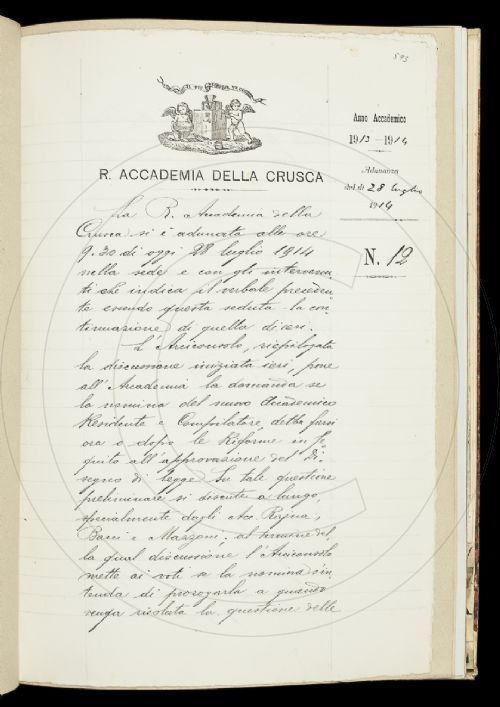 593
R. ACCADEMIA DELLA CRUSCA
Anno Accademico
1913-1914
Adunanza
del dì 28 luglio
1914
N. 12
La R. Accademia della
Crusca si è adunata alle ore
9.30 di oggi 28 luglio 1914
nella sede e con gli intervenu
ti che indica il verbale preceden
te essendo questa seduta la con
tinuazione di quella di ieri.
L'Arciconsolo, riepilogata
la discussione iniziata ieri, pone
all'Accademia la domanda se
la nomina del nuovo Accademico
Residente e Compilatore, debba farsi
ora o dopo le Riforme in se
guito all'approvazione del Di
segno di legge. Su tale questione
preliminare si discute a lungo,
specialmente dagli Acc. Rajna,
Bacci e Mazzoni; al termine del
la qual discussione l'Arciconsolo
mette ai voti se la nomina s'in
tenda di prorogarla a quando
venga risoluta la questione delle